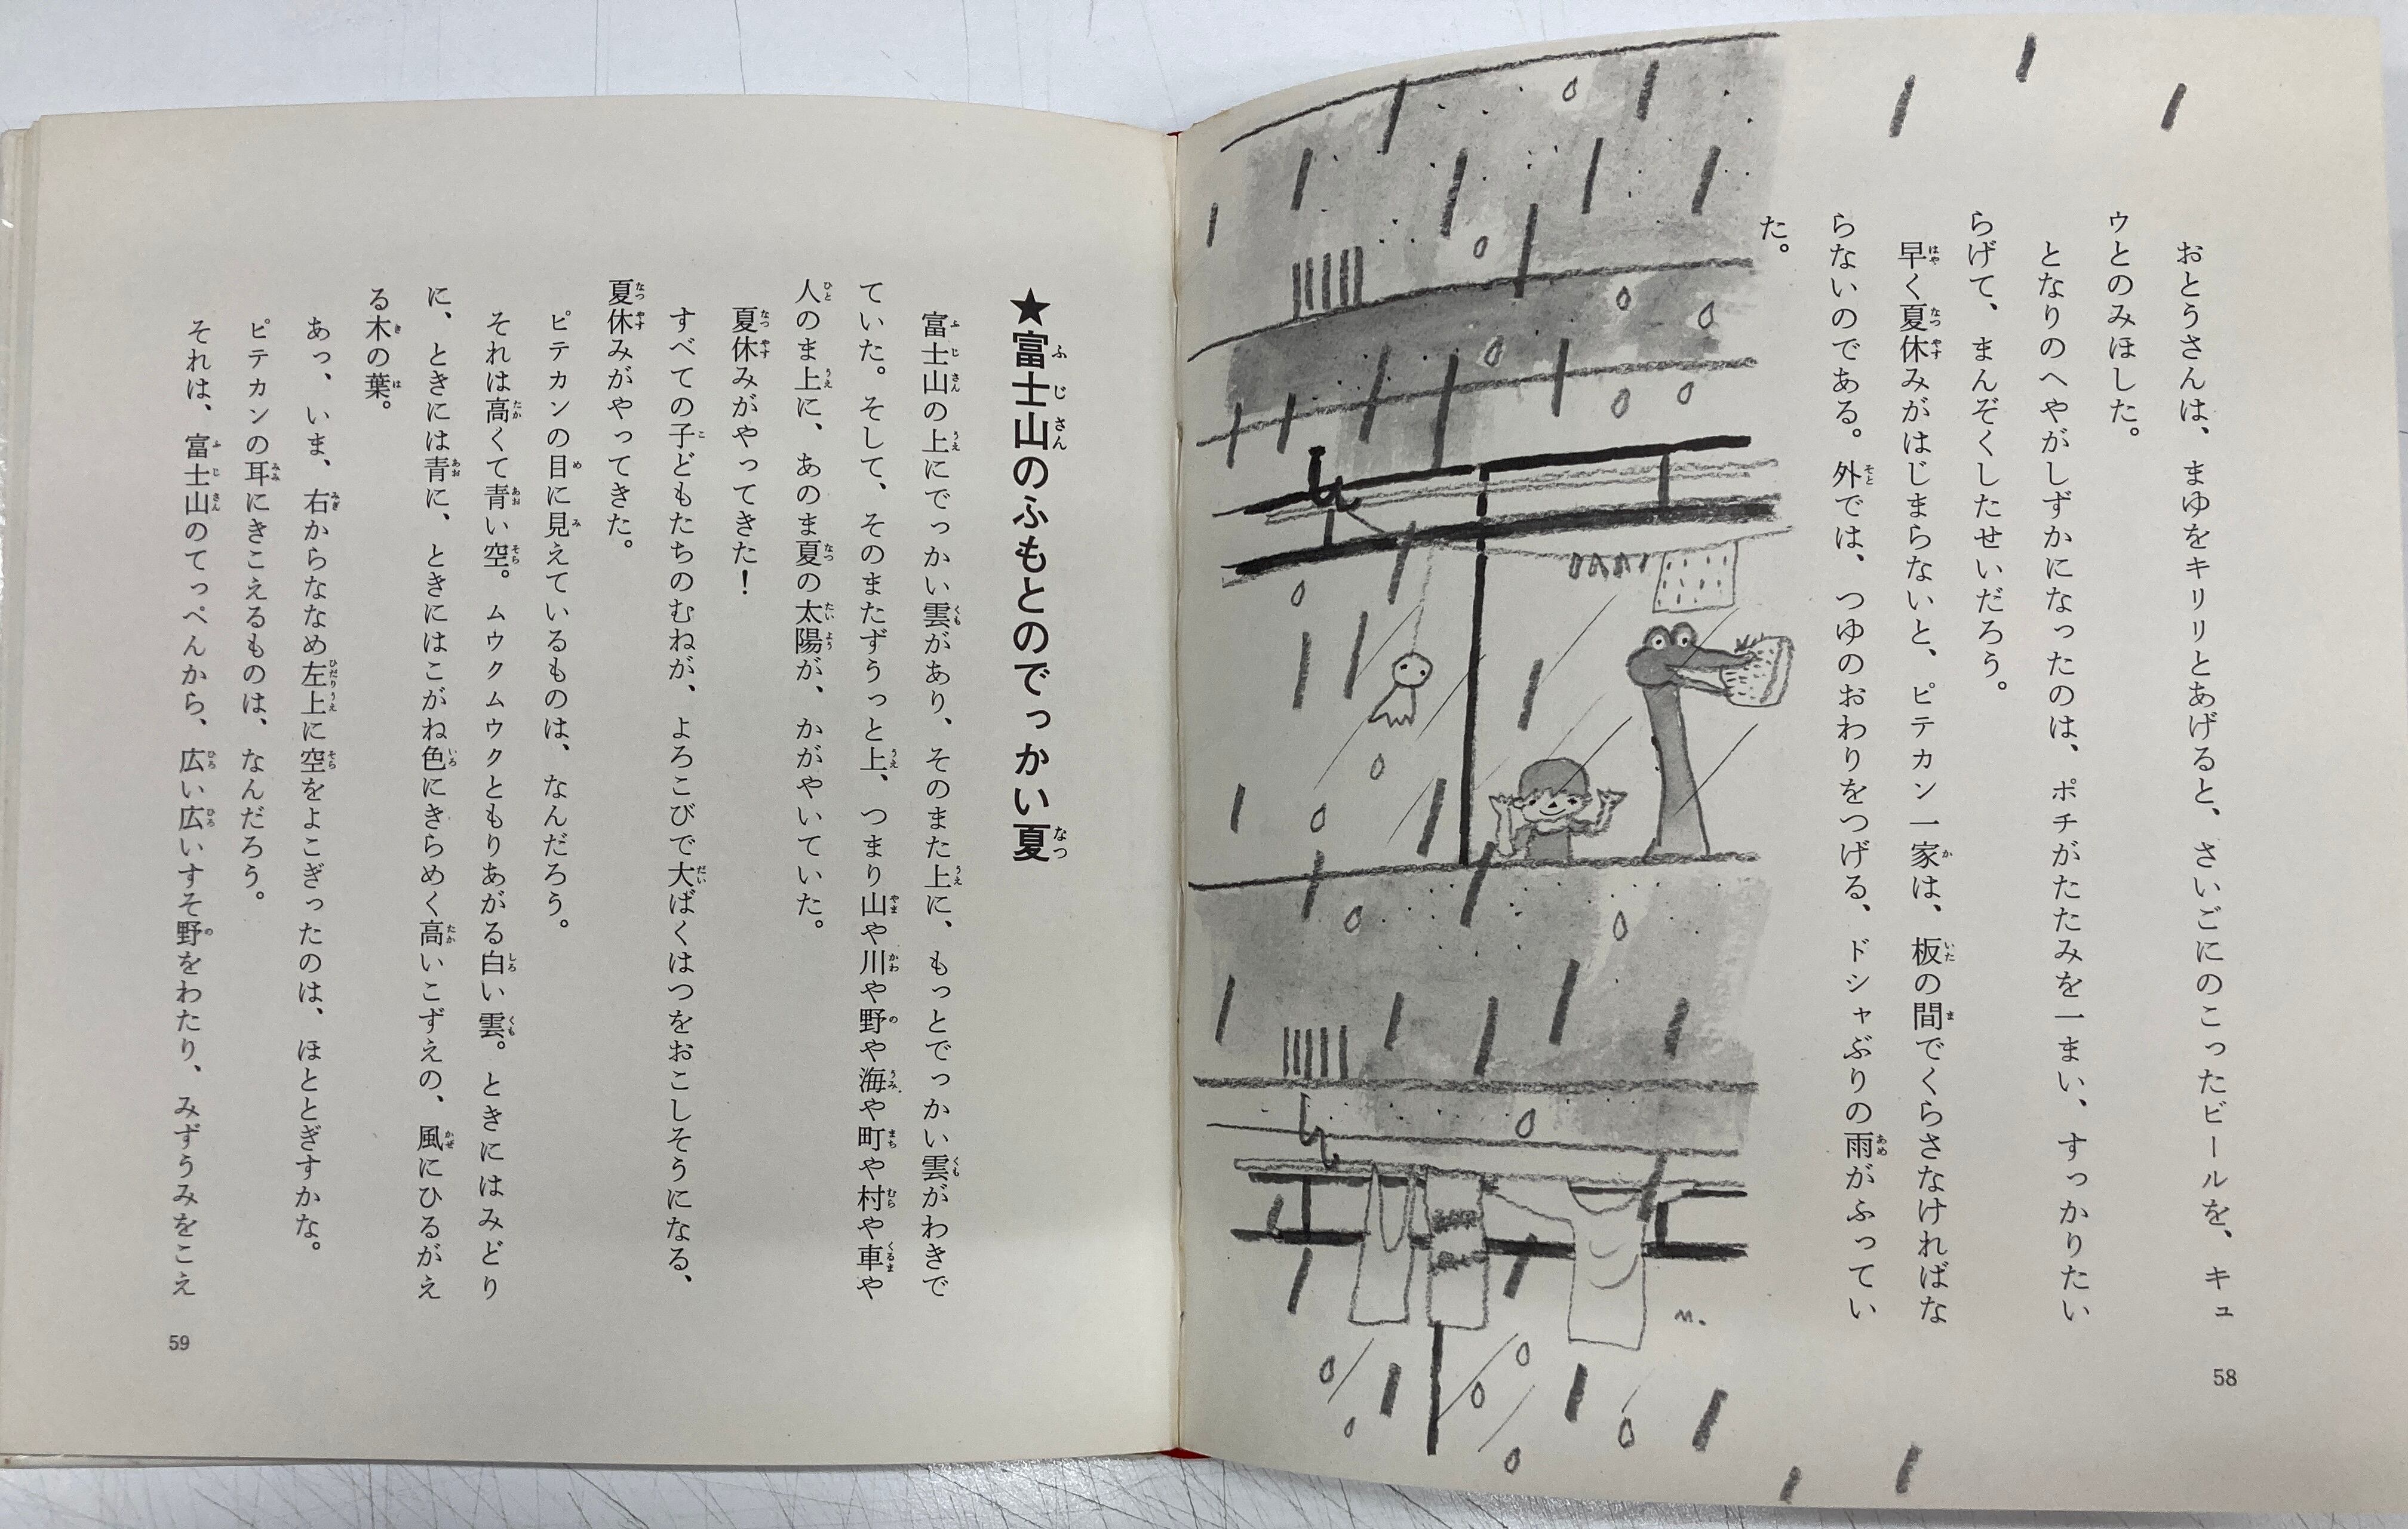 おとうさんは、まゆをキリリとあげると、さいごにのこったビールを、キュ
ウとのみほした。
となりのへやがしずかになったのは、ポチがたたみを一まい、すっかりたい
らげて、まんぞくしたせいだろう。
早く夏休みがはじまらないと、ピテカン一家は、板の間でくらさなければな
らないのである。外では、つゆのおわりをつげる、ドシャぶりの雨がふってい
た。
58
★富士山のふもとのでっかい夏
富士山の上にでっかい雲があり、そのまた上に、もっとでっかい雲がわきで
ていた。そして、そのまたずうっと上、つまり山や川や野や海や町や村や車や
人のま上に、あのま夏の太陽が、かがやいていた。
夏休みがやってきた！
すべての子どもたちのむねが、よろこびで大ばくはつをおこしそうになる、
夏休みがやってきた。
ピテカンの目に見えているものは、なんだろう。
それは高くて青い空。ムウクムウクともりあがる白い雲。ときにはみどり
に、ときには青に、ときにはこがね色にきらめく高いこずえの、風にひるがえ
る木の葉。
あっ、いま、右からななめ左上に空をよこぎったのは、ほととぎすかな。
ピテカンの耳にきこえるものは、なんだろう。
それは、富士山のてっぺんから、広い広いすそ野をわたり、みずうみをこえ
59